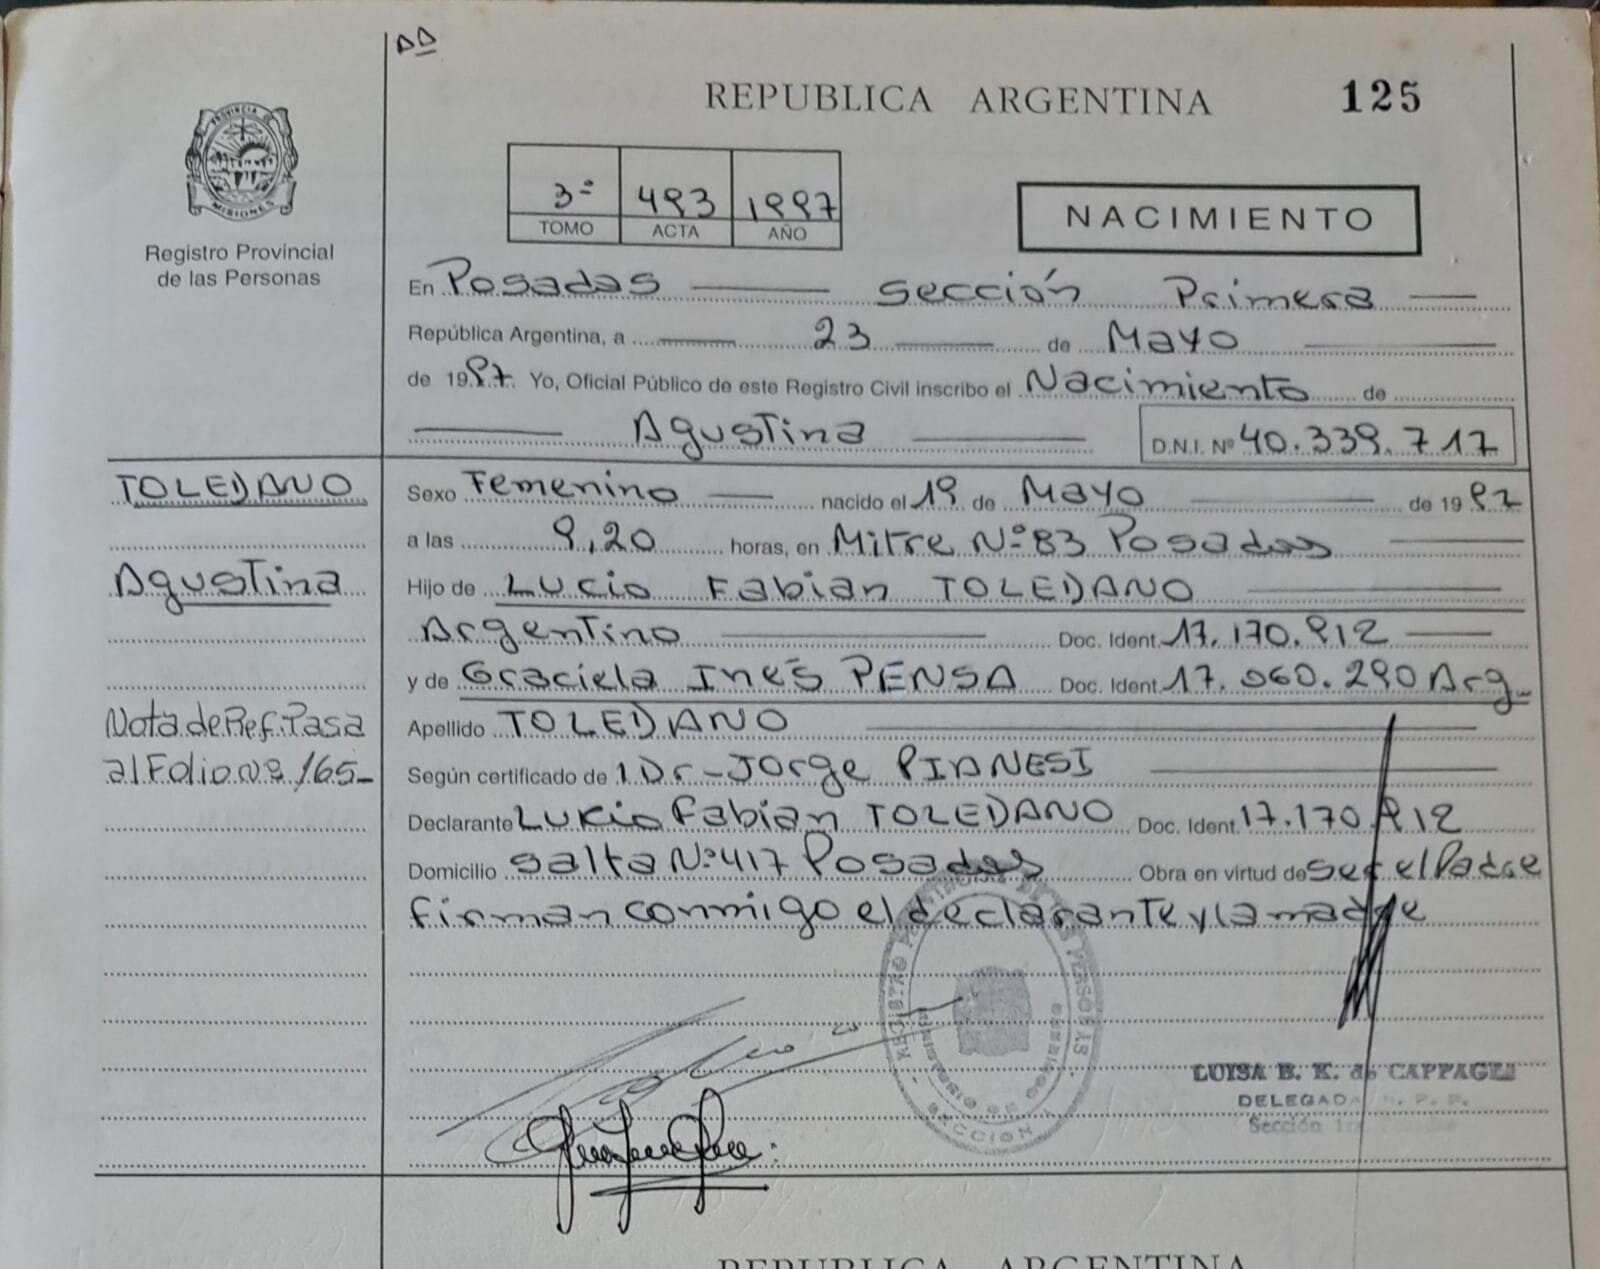 REPUBLICA ARGENTINA 125
PROVINCIA DE
MISIONES
Registro Provincial
de las Personas
3º 493 1997
TOMO ACTA AÑO
NACIMIENTO
En Posadas sección Primera
República Argentina, a 23 de Mayo
de 1997. Yo, Oficial Público de este Registro Civil inscribo el Nacimiento de
Agustina D.N.I. Nº 40.339.717
TOLEDANO
Agustina
Nota de Ref. Pasa
al Folio Nº 165-
Sexo Femenino nacido el 19 de Mayo de 1997
a las 9,20 horas, en Mitre Nº 83 Posadas
Hijo de Lucio Fabian TOLEDANO
Argentino Doc. Ident. 17.170.912
y de Graciela Inés PENSA Doc. Ident. 17.060.290 Arg.
Apellido TOLEDANO
Según certificado de 1 Dr-Jorge PIANESI
Declarante Lucio Fabian TOLEDANO Doc. Ident. 17.170.912
Domicilio Salta Nº 417 Posadas Obra en virtud de ser el Padre
firman conmigo el declarante y la madre
LUISA B. K. de CAPPAGLI
DELEGADA R. P. P.
Sección 1ra
REPUBLICA ARGENTINA